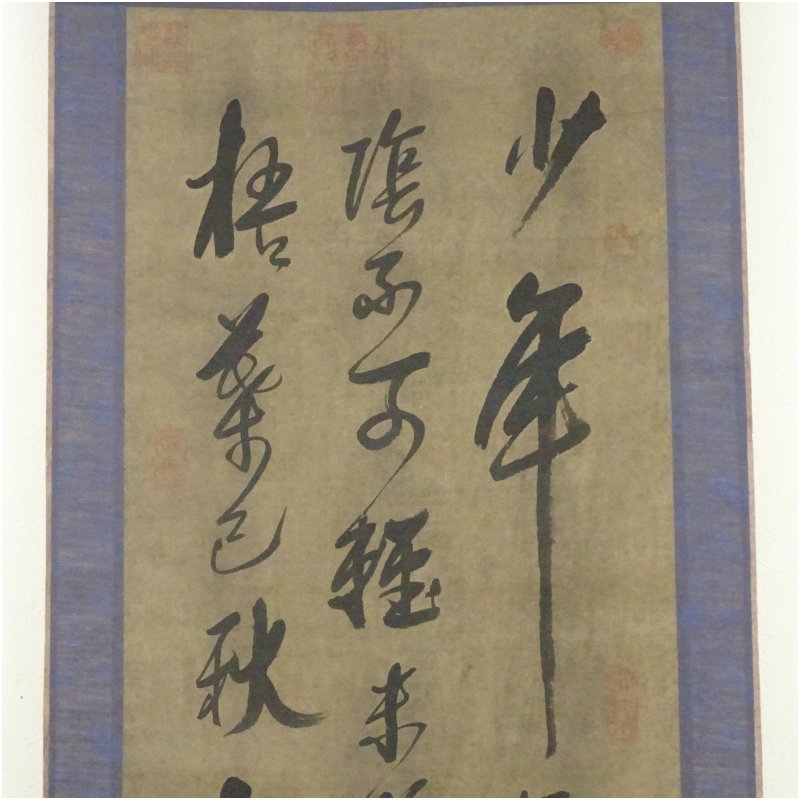 少年
陰不可輕未
梧葉已秋